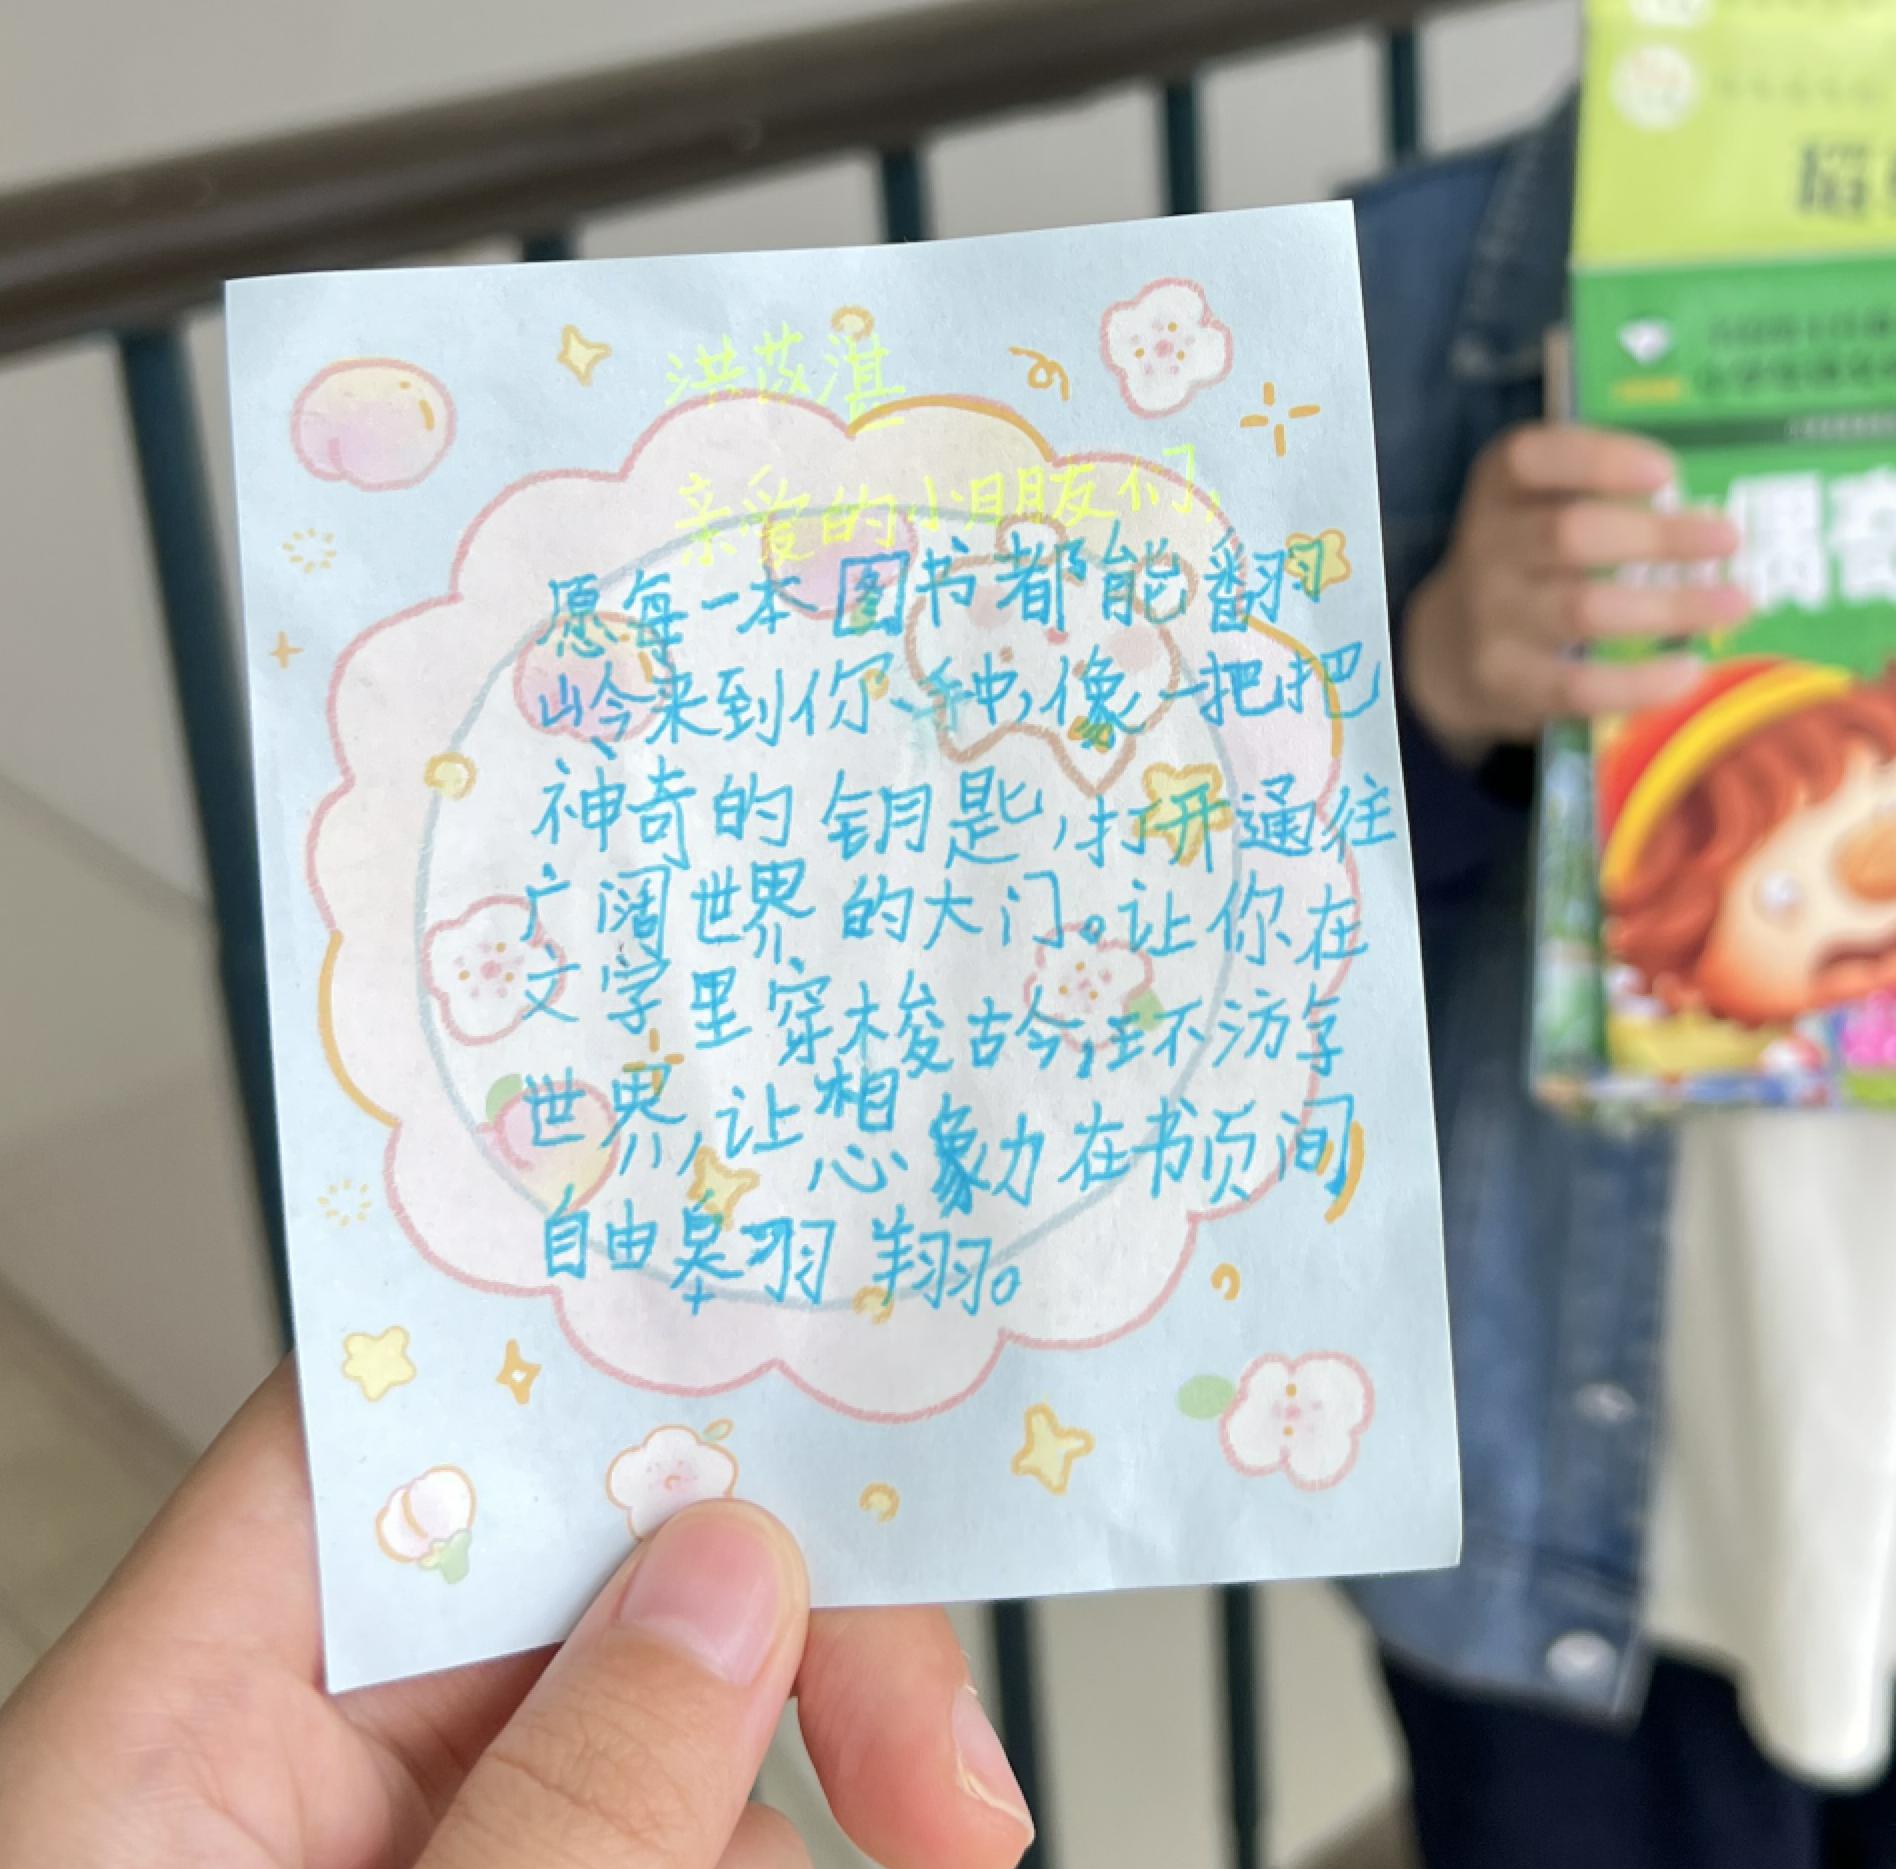 洪苡湛
亲爱的小朋友们,
愿每一本图书都能翻
山岭来到你手中,像一把把
神奇的钥匙,打开通往
广阔世界的大门。让你在
文字里穿梭古今,
世界,让想象力在书页间
自由翱翔。
偶奇